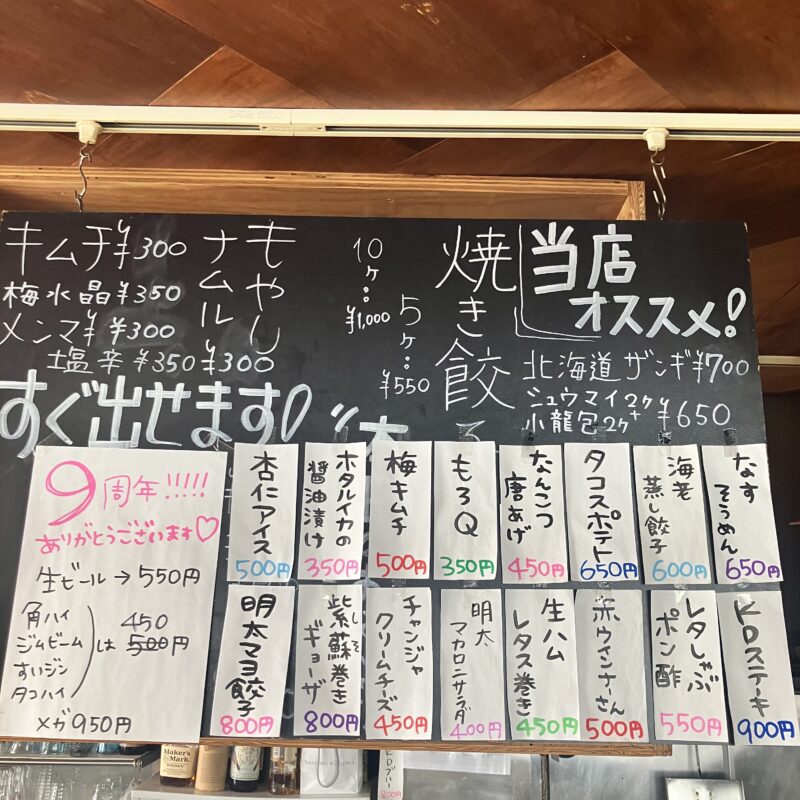 当店
オススメ!
北海道 ザンギ ¥700
シュウマイ2ケ+
小龍包2ケ ¥650
焼き餃子
5ケ:¥550
10ケ:¥1,000
もやし
ナムル
¥300
キムチ ¥300
梅水晶 ¥350
メンマ ¥300
塩辛 ¥350
すぐ出せます!
なす
そうめん
650円
海老
蒸し餃子
600円
タコスポテト
650円
なんこつ
唐あげ
450円
もろQ
350円
梅キムチ
500円
ホタルイカの
醤油漬け
350円
杏仁アイス
500円
KDステーキ
900円
レタしゃぶ
ポン酢
550円
赤ウインナーさん
500円
生ハム
レタス巻き
450円
明太
マカロニサラダ
400円
チャンジャ
クリームチーズ
450円
紫蘇巻き
しそ
ギョーザ
800円
明太マヨ餃子
800円
9周年!!!!!
ありがとうございます♡
生ビール→550円
角ハイ
ジムビーム
すいジン
タコハイ
は 450
500円
メガ 950円
Maker's
Mark
KDブルー
800円